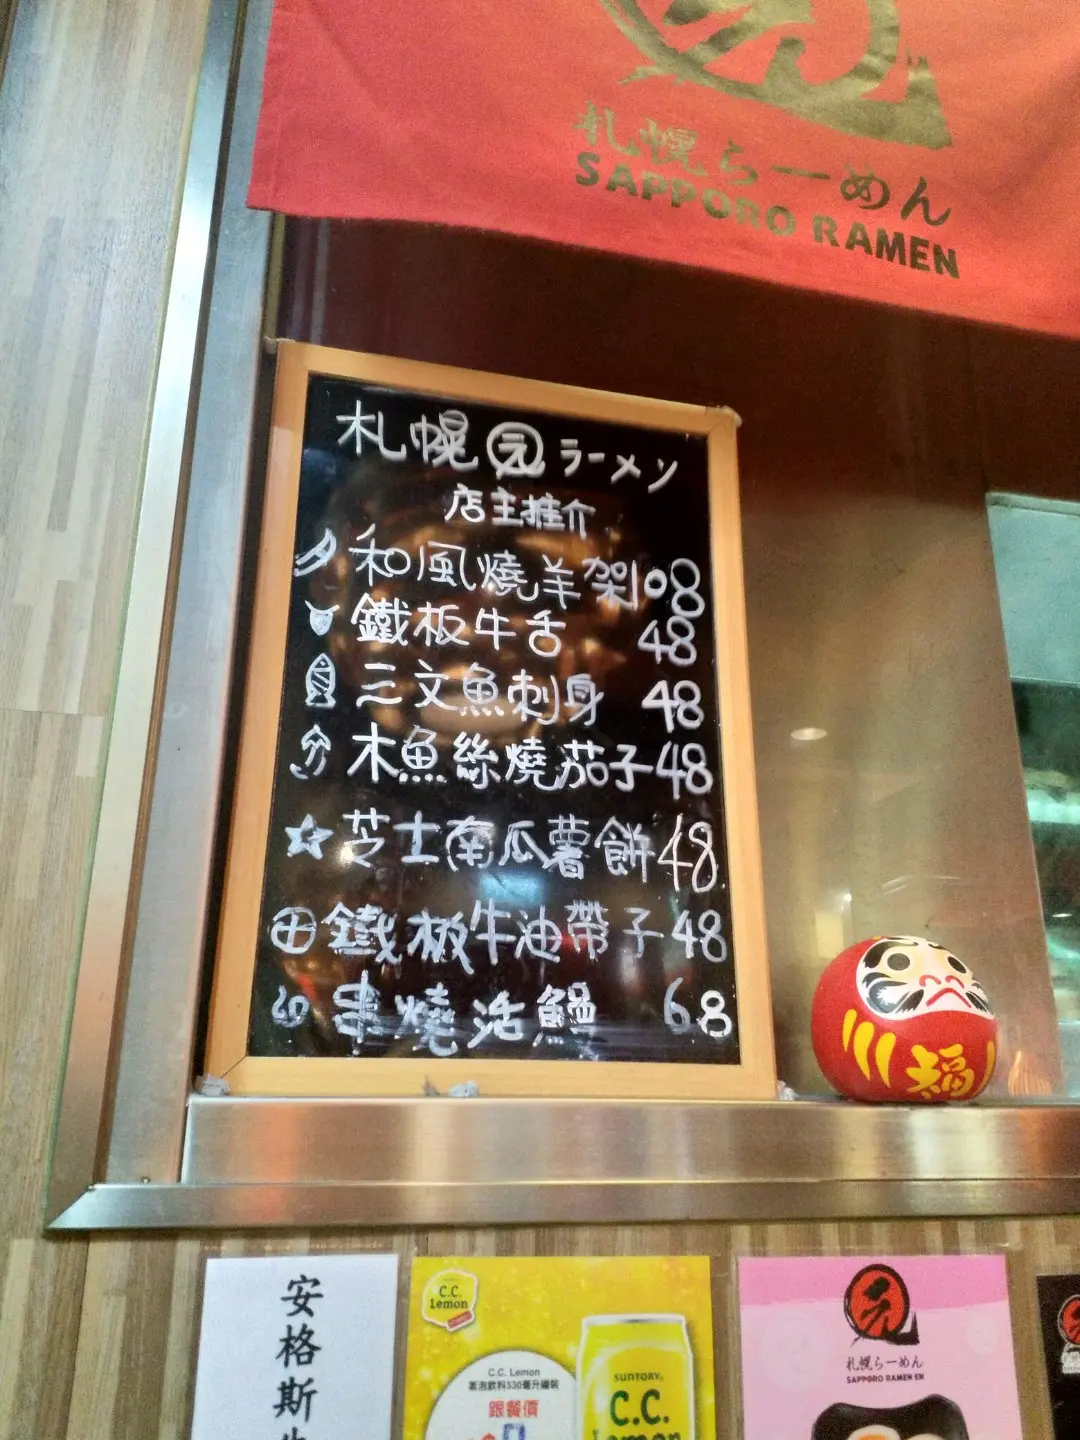 札幌らーめん
SAPPORO RAMEN
札幌 元 ラーメン
店主推介
和風燒羊架 108
鐵板牛舌 48
三文魚刺身 48
木魚絲燒茄子 48
芝士南瓜薯餅 48
鐵板牛油帶子 48
串燒活鰻 68
福
安格斯
C.C. Lemon
C.C. Lemon
氣泡飲料530毫升罐裝
跟餐價
SUNTORY
C.C.
Lemon
札幌らーめん
SAPPORO RAMEN EN